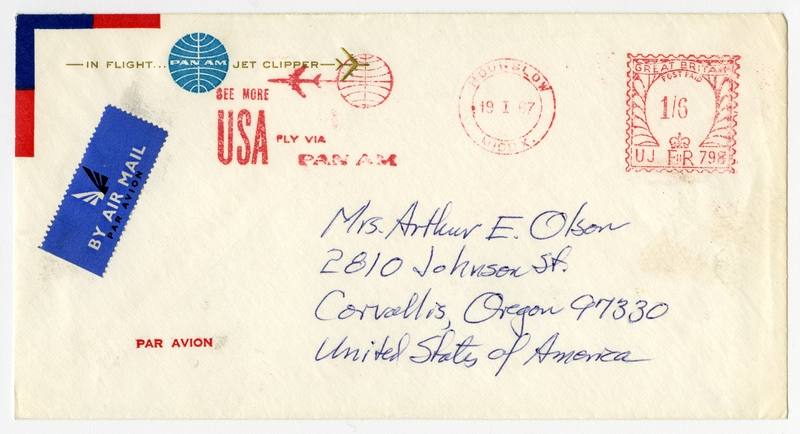 IN FLIGHT... PAN AM JET CLIPPER
SEE MORE
USA FLY VIA
PAN AM
HOUNSLOW
19 I 67
MIDDX.
GREAT BRITAIN
POST PAID
1/6
UJ FIIR 798
BY AIR MAIL
PAR AVION
Mrs. Arthur E. Olson
2810 Johnson St.
Corvallis, Oregon 97330
United States of America
PAR AVION